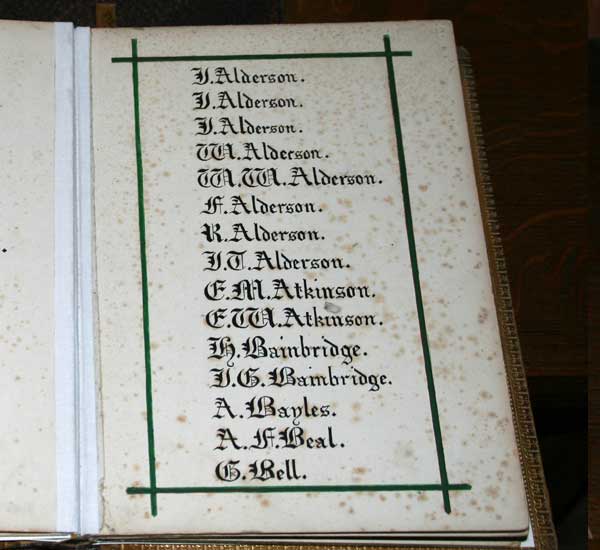 J. Alderson.
J. Alderson.
J. Alderson.
W. Alderson.
W. W. Alderson.
F. Alderson.
R. Alderson.
J. T. Alderson.
E. M. Atkinson.
E. W. Atkinson.
H. Bainbridge.
J. G. Bainbridge.
A. Bayles.
A. F. Beal.
G. Bell.